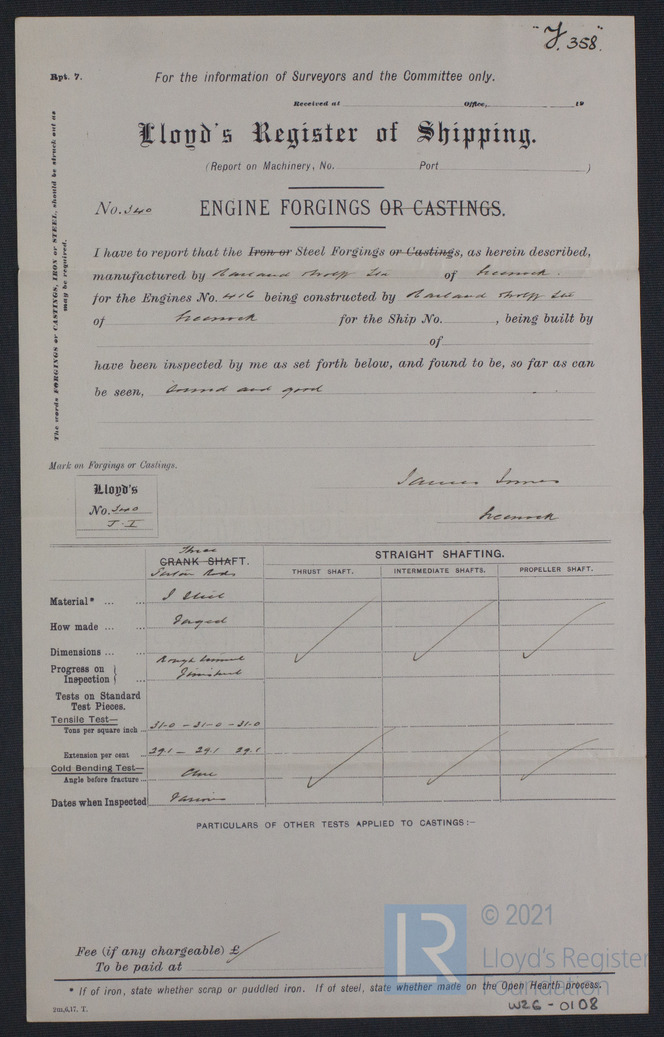 "J. 358."
Rpt. 7.
For the information of Surveyors and the Committee only.
Received at Office, 19
Lloyd's Register of Shipping.
(Report on Machinery, No. Port )
No. 340 ENGINE FORGINGS OR CASTINGS.
I have to report that the Iron or Steel Forgings or Castings, as herein described,
manufactured by Harland & Wolff Ltd of Greenock.
for the Engines No. 416 being constructed by Harland & Wolff Ltd
of Greenock for the Ship No. , being built by
of
have been inspected by me as set forth below, and found to be, so far as can
be seen, Sound and good
The words FORGINGS or CASTINGS, IRON or STEEL, should be struck out as
may be required.
Mark on Forgings or Castings.
Lloyd's
No. 340
J. I
James Innes
Greenock
Three
CRANK SHAFT.
Piston Rods
STRAIGHT SHAFTING.
THRUST SHAFT. INTERMEDIATE SHAFTS. PROPELLER SHAFT.
Material* ... ... Steel
How made ... ... Forged
Dimensions ... ...
Progress on Inspection ... Rough turned
Finished
Tests on Standard
Test Pieces.
Tensile Test—
Tons per square inch ... 31.0 - 31.0 - 31.0
Extension per cent ... 29.1 - 29.1 29.1
Cold Bending Test—
Angle before fracture ...
Dates when Inspected Various
PARTICULARS OF OTHER TESTS APPLIED TO CASTINGS:—
Fee (if any chargeable) £
To be paid at
* If of iron, state whether scrap or puddled iron. If of steel, state whether made on the Open Hearth process.
2m,6,17. T.
W26-0108
LR
© 2021
Lloyd's Register
Foundation